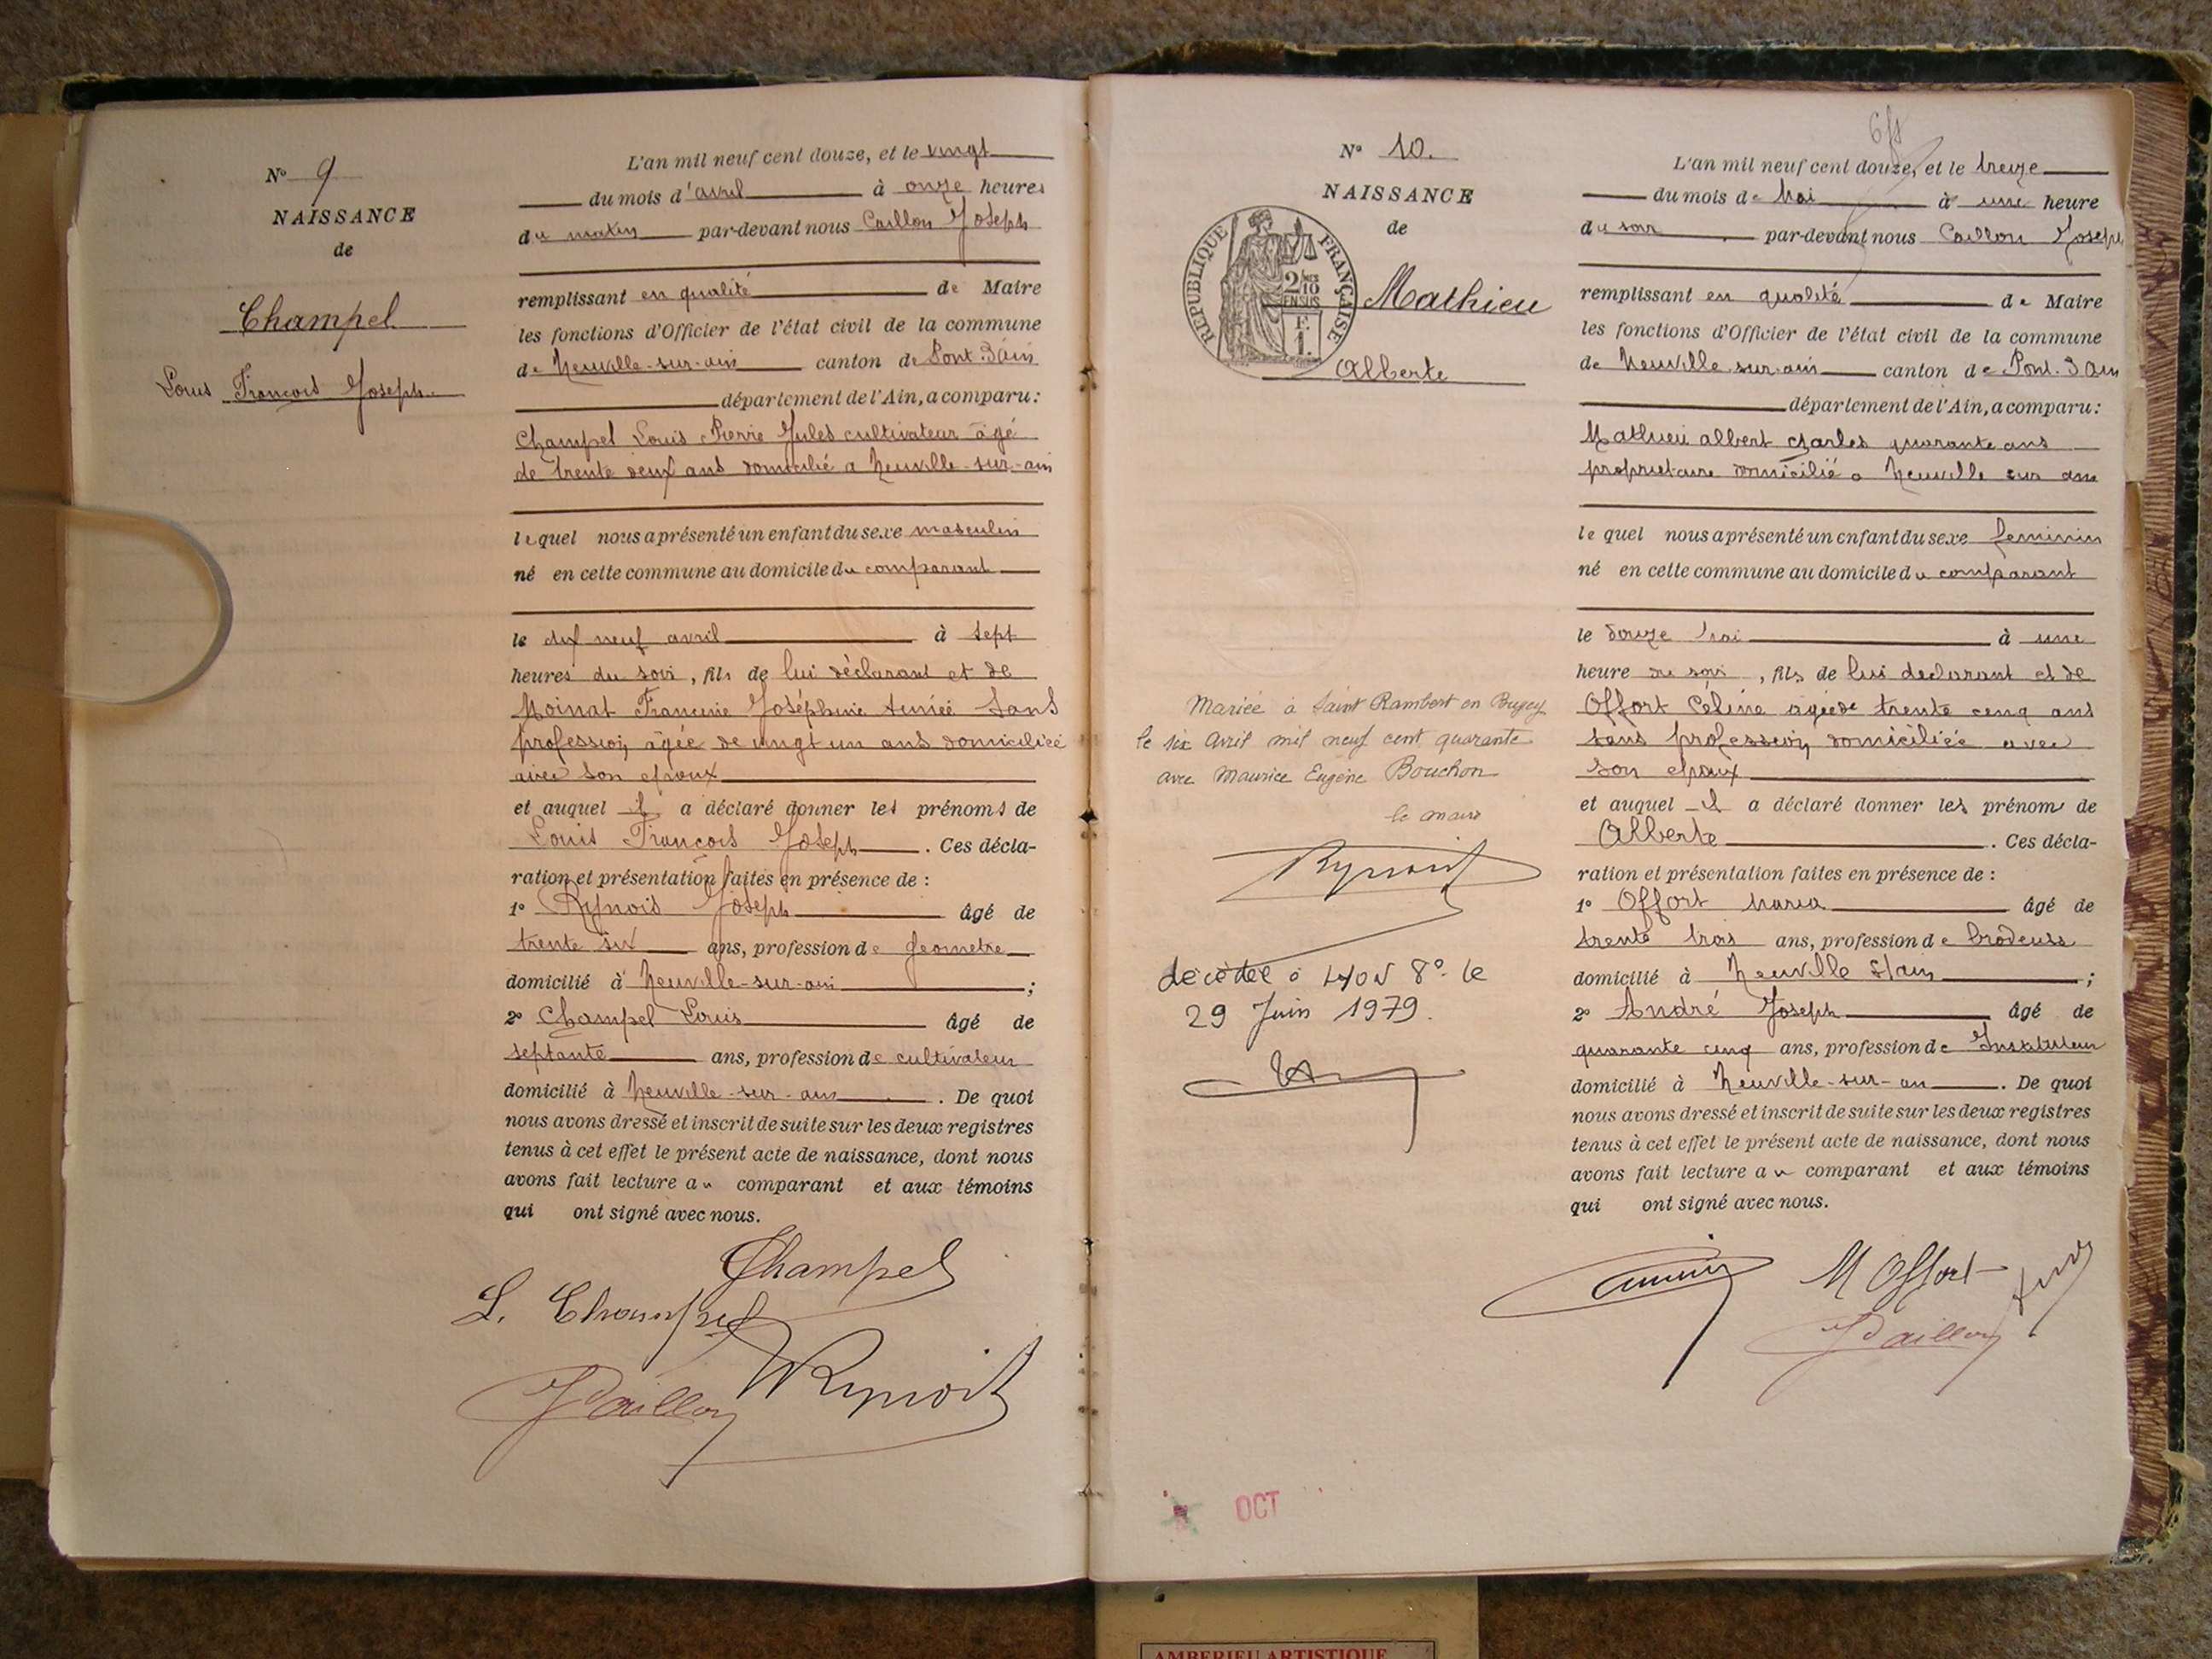 N° 9
NAISSANCE
de
Champel
Louis François Joseph
L'an mil neuf cent douze, et le vingt
du mois d'avril à onze heures
du matin par-devant nous Caillon Joseph
remplissant en qualité de Maire
les fonctions d'Officier de l'état civil de la commune
de Neuville-sur-ain canton de Pont-d'ain
département de l'Ain, a comparu:
Champel Louis Pierre Jules cultivateur âgé
de trente deux ans domicilié a Neuville-sur-ain
lequel nous a présenté un enfant du sexe masculin
né en cette commune au domicile du comparant
le dix neuf avril à sept
heures du soir, fils de lui déclarant et de
Moinat Francine Joséphine sans
profession, âgée de vingt un ans domiciliée
avec son epoux
et auquel il a déclaré donner les prénoms de
Louis François Joseph. Ces décla-
ration et présentation faites en présence de :
1° Rynois Joseph âgé de
trente six ans, profession de geometre
domicilié à Neuville-sur-ain ;
2° Champel Louis âgé de
septante ans, profession de cultivateur
domicilié à Neuville-sur-ain. De quoi
nous avons dressé et inscrit de suite sur les deux registres
tenus à cet effet le présent acte de naissance, dont nous
avons fait lecture au comparant et aux témoins
qui ont signé avec nous.
Champel
L. Champel
Rynois
J Caillon
N° 10.
NAISSANCE
de
REPUBLIQUE FRANÇAISE
2/10
EN SUS
F.
1.
Mathieu
Alberte
Mariée à Saint Rambert en Bugey
le six Avril mil neuf cent quarante
avec Maurice Eugène Bouchon
le maire
décédée à LYON 8° le
29 Juin 1979.
L'an mil neuf cent douze, et le treize
du mois de Mai à une heure
du soir par-devant nous Caillon Joseph
remplissant en qualité de Maire
les fonctions d'Officier de l'état civil de la commune
de Neuville-sur-ain canton de Pont-d'ain
département de l'Ain, a comparu:
Mathieu albert charles quarante ans
proprietaire domicilié a Neuville sur ain
lequel nous a présenté un enfant du sexe feminin
né en cette commune au domicile du comparant
le douze Mai à une
heure du soir, fils de lui declarant et de
Offort Céline agée de trente cinq ans
sans profession, domiciliée avec
son epoux
et auquel il a déclaré donner les prénom de
Alberte. Ces décla-
ration et présentation faites en présence de :
1° Offort Maria âgé de
trente trois ans, profession de brodeuse
domicilié à Neuville s/ain ;
2° André Joseph âgé de
quarante cinq ans, profession de Instituteur
domicilié à Neuville-sur-ain. De quoi
nous avons dressé et inscrit de suite sur les deux registres
tenus à cet effet le présent acte de naissance, dont nous
avons fait lecture au comparant et aux témoins
qui ont signé avec nous.
M Offort
J Caillon
OCT
AMBERIEU ARTISTIQUE